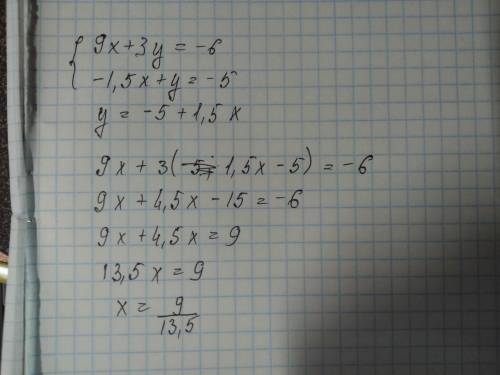 { 9x + 3y = -6
-1,5x + y = -5
y = -5 + 1,5x
9x + 3(1,5x - 5) = -6
9x + 4,5x - 15 = -6
9x + 4,5x = 9
13,5x = 9
x = 9/13,5